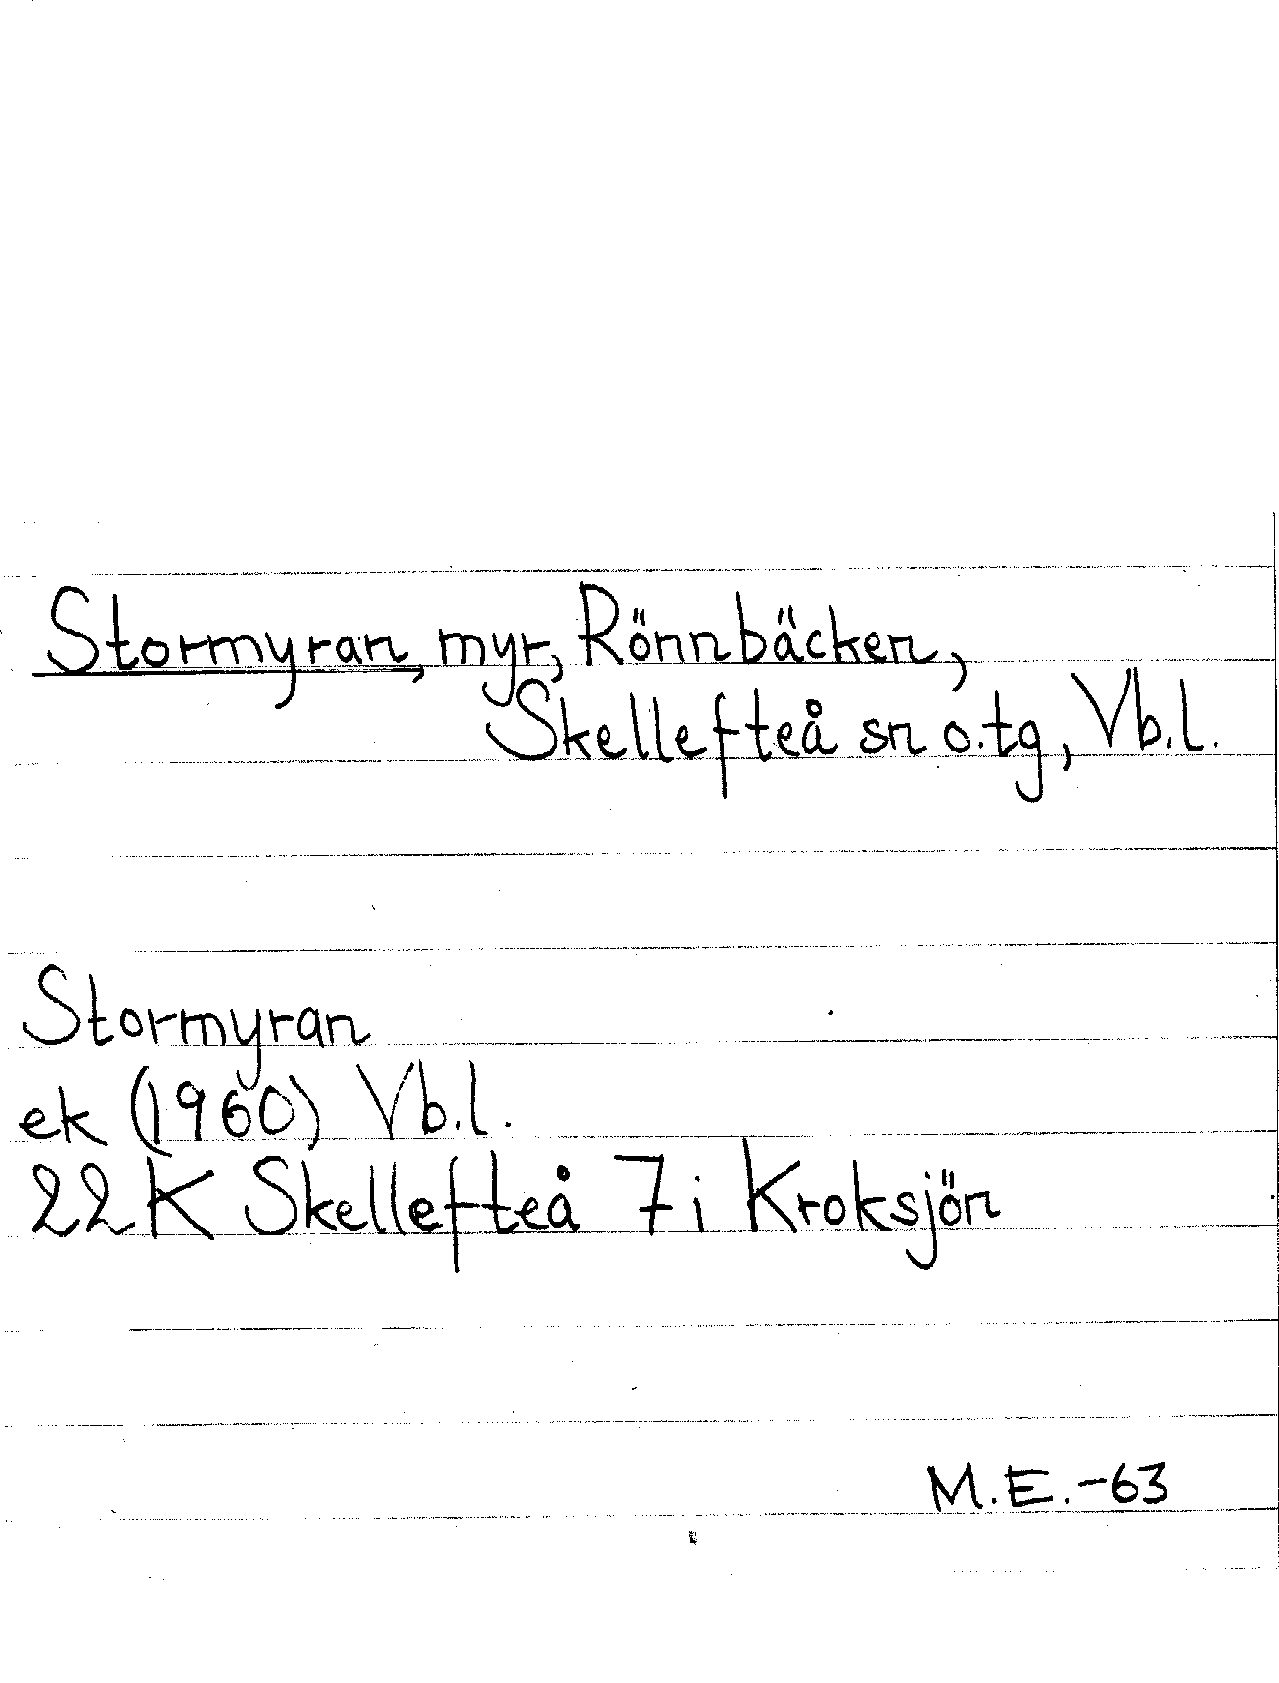 Stormyran, myr, Rönnbäcken,
Skellefteå sn o. tg, Vb.l.
Stormyran
ek (1960) Vb.l.
22K Skellefteå 7i Kroksjön
M.E.-63